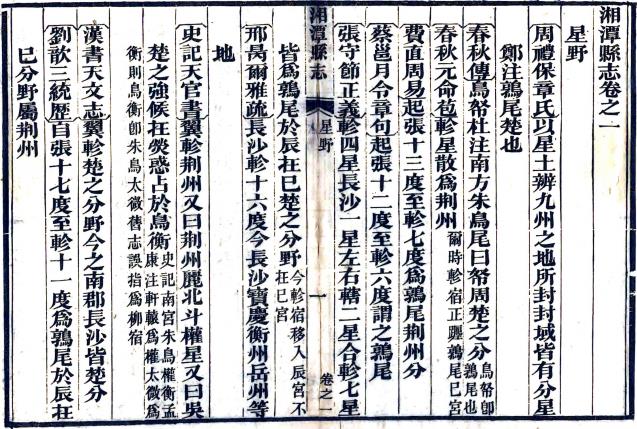 湘潭縣志卷之一
星野
周禮保章氏以星土辨九州之地所封封域皆有分星
鄭注鶉尾楚也
春秋傳鳥帑杜注南方朱鳥尾曰帑周楚之分鳥帑卽鶉尾也
春秋元命苞軫星散爲荆州爾時軫宿正躔鶉尾巳宮
費直周易起張十三度至軫七度爲鶉尾荆州分
蔡邕月令章句起張十二度至軫六度謂之鶉尾
張守節正義軫四星長沙一星左右轄二星合軫七星
湘潭縣志
星野
一
卷之一
皆爲鶉尾於辰在巳楚之分野今軫宿移入辰宮不在巳宮
邢昺爾雅疏長沙軫十六度今長沙寶慶衡州岳州等
地
史記天官書翼軫荆州又曰荆州麗北斗權星又曰吳
楚之強候在熒惑占於鳥衡史記南宮朱鳥權衡孟康注軒轅爲權太微爲
衡則鳥衡卽朱鳥太微舊志誤指爲柳宿
漢書天文志翼軫楚之分野今之南郡長沙皆楚分
劉歆三統歴自張十七度至軫十一度爲鶉尾於辰在
巳分野屬荆州